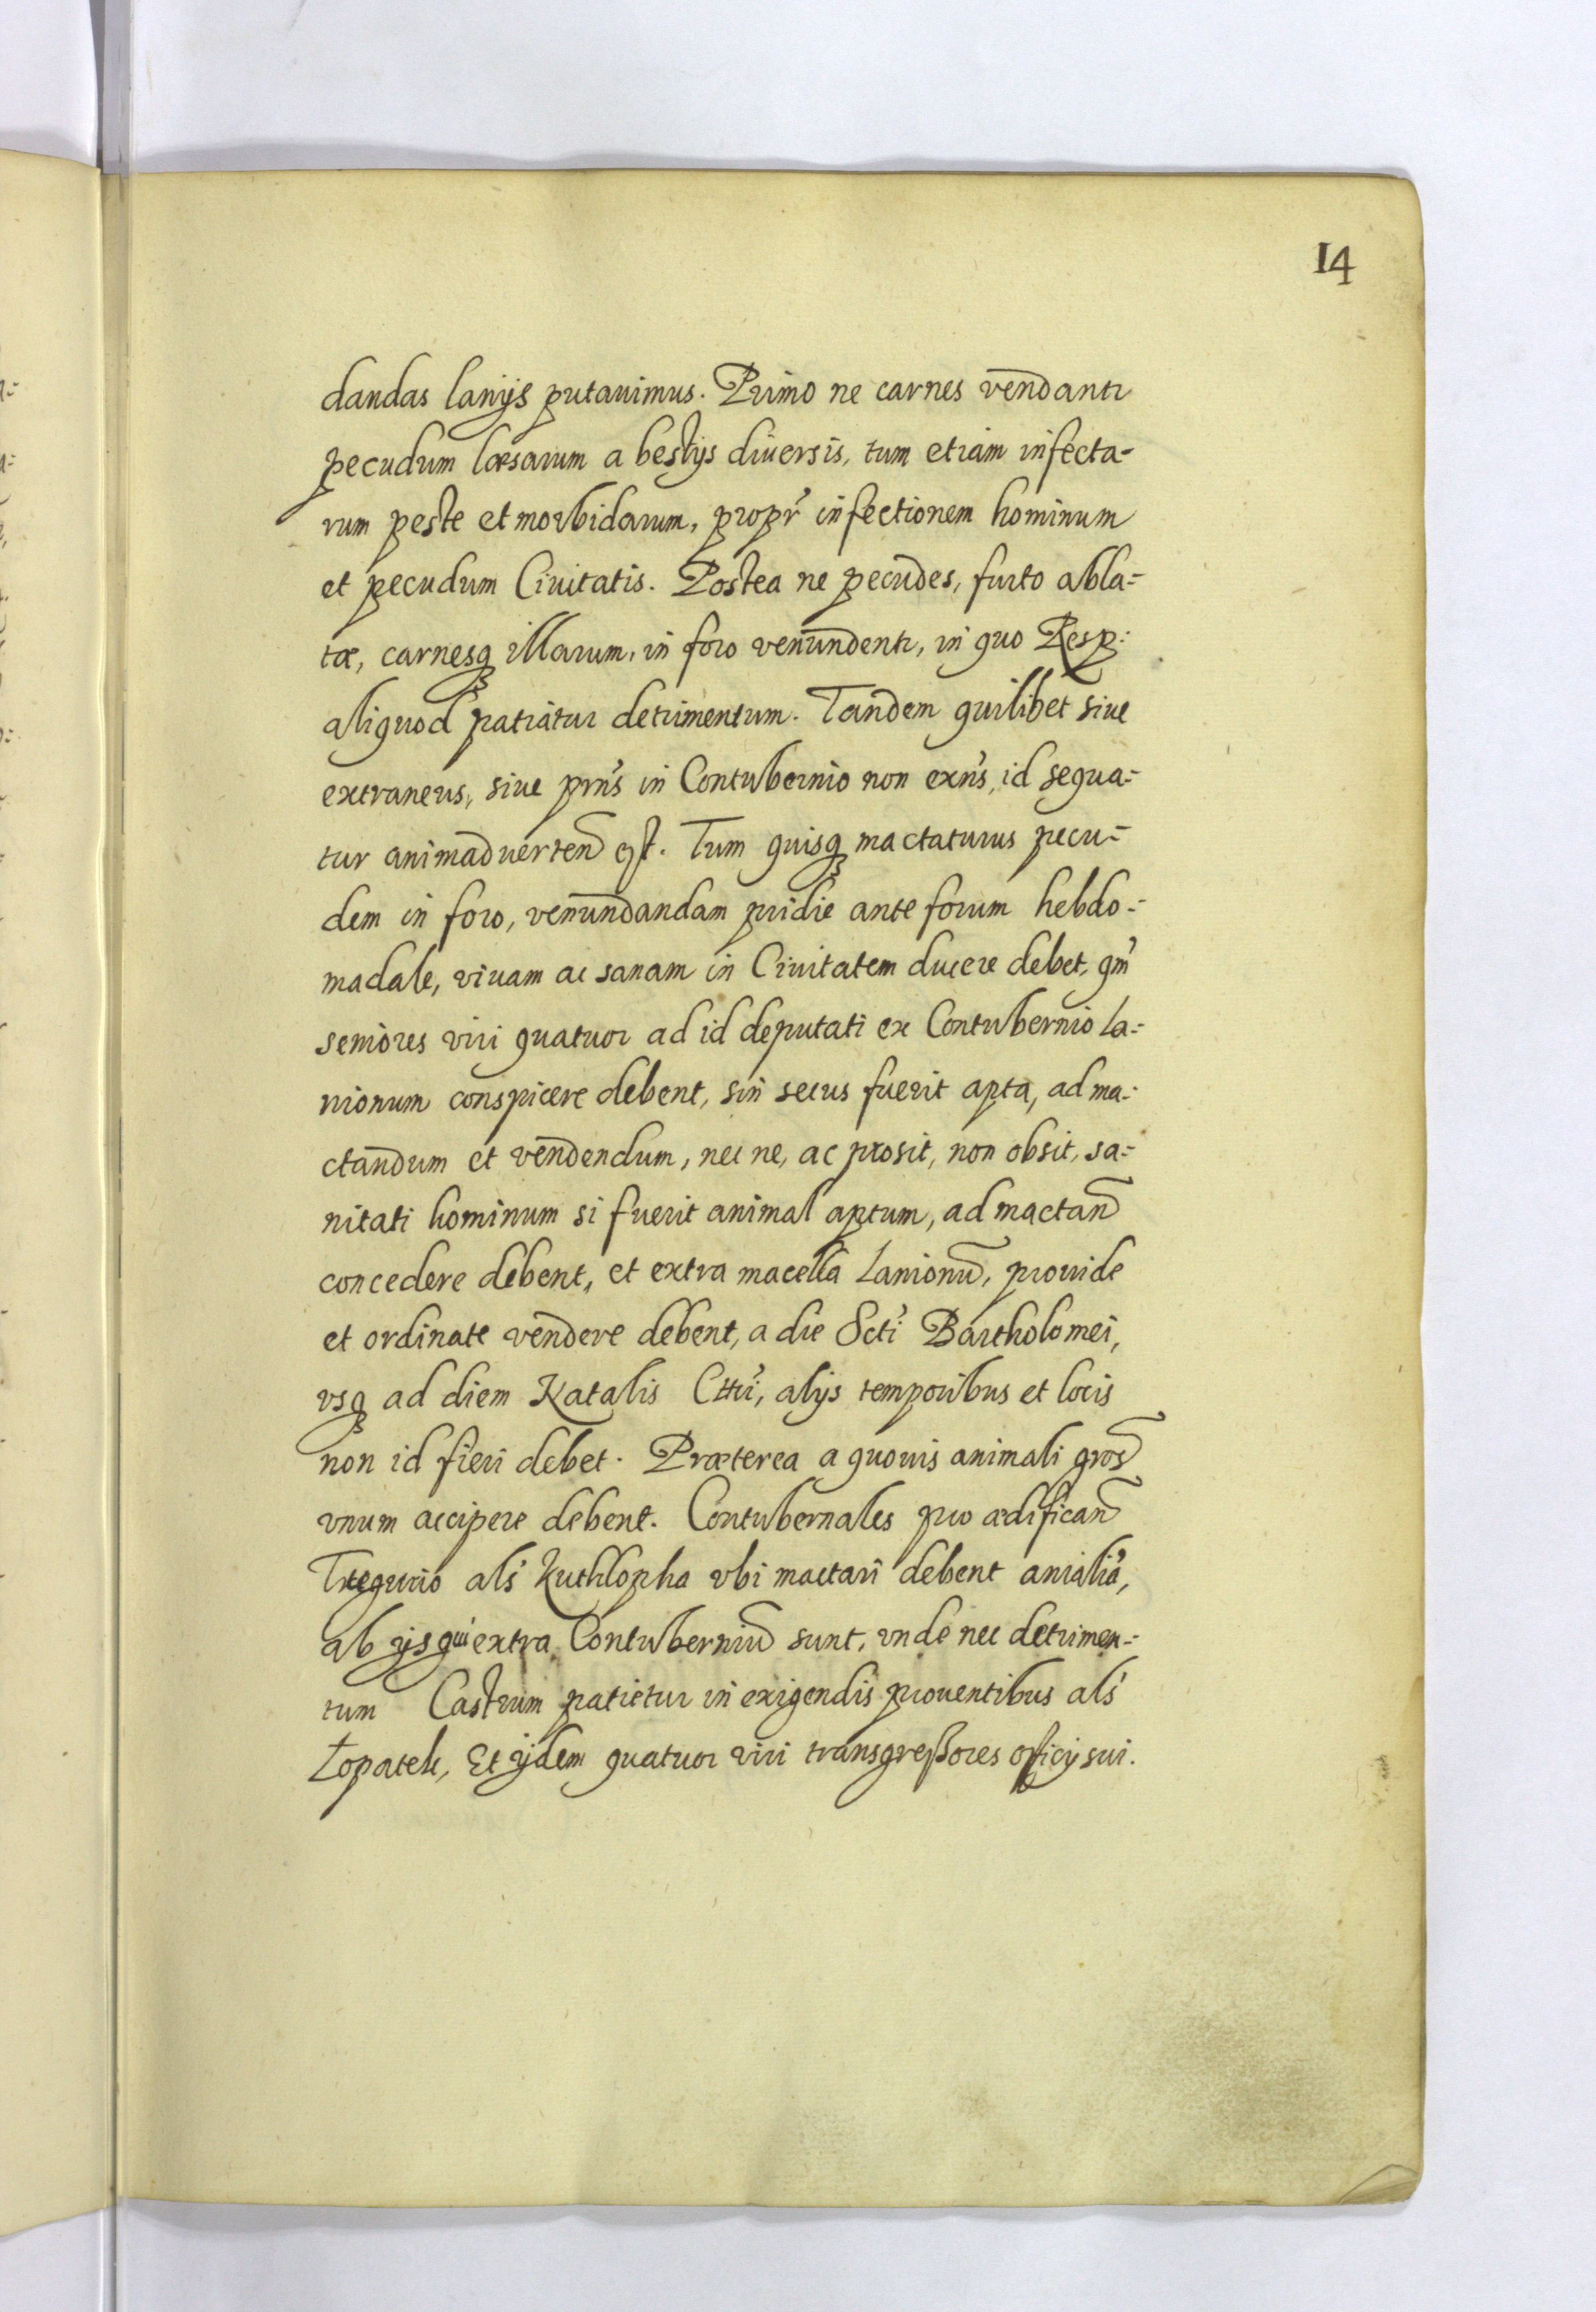 14
dandas lanijs putauimus. Primo ne carnes vendantr
pecudum læsarum a bestijs diuersis, tum etiam infecta=
rum peste et morbidarum, proptr' infectionem hominum
et pecudum Ciuitatis. Postea ne pecudes, furto abla=
tæ, carnesq illarum, in foro venundentr, in quo Resp:
aliquod patiatur detrimentum. Tandem quilibet siue
extraneus, siue prn's in Contubernio non exn's, id sequa=
tur animaduerten̄ est. Tum quisq mactaturus pecu=
dem in foro, venundandam pridie ante forum hebdo=
madale, viuam ac sanam in Ciuitatem ducere debet, qm'
seniores viri quatuor ad id deputati ex Contubernio La=
nionum conspicere debent, sin secus fuerit apta, ad ma=
ctandum et vendendum, nec ne, ac prosit, non obsit, sa=
nitati hominum si fuerit animal aptum, ad mactan̄
concedere debent, et extra macella Lanionū, prouide
et ordinate vendere debent, a die Scti' Bartholomei,
vsq ad diem Natalis Chri', alijs temporibus et locis
non id fieri debet. Præterea a quouis animali gros̄
vnum accipere debent. Contubernales pro ædifican̄
Tugurio als' Kuthlopha vbi mactari debent anialia',
ab ijs qui extra Contuberniū sunt, vnde nec detrimen=
tum Castrum patietur in exigendis prouentibus als'
Łopatek, Et ijdem quatuor viri transgreßores officij sui.